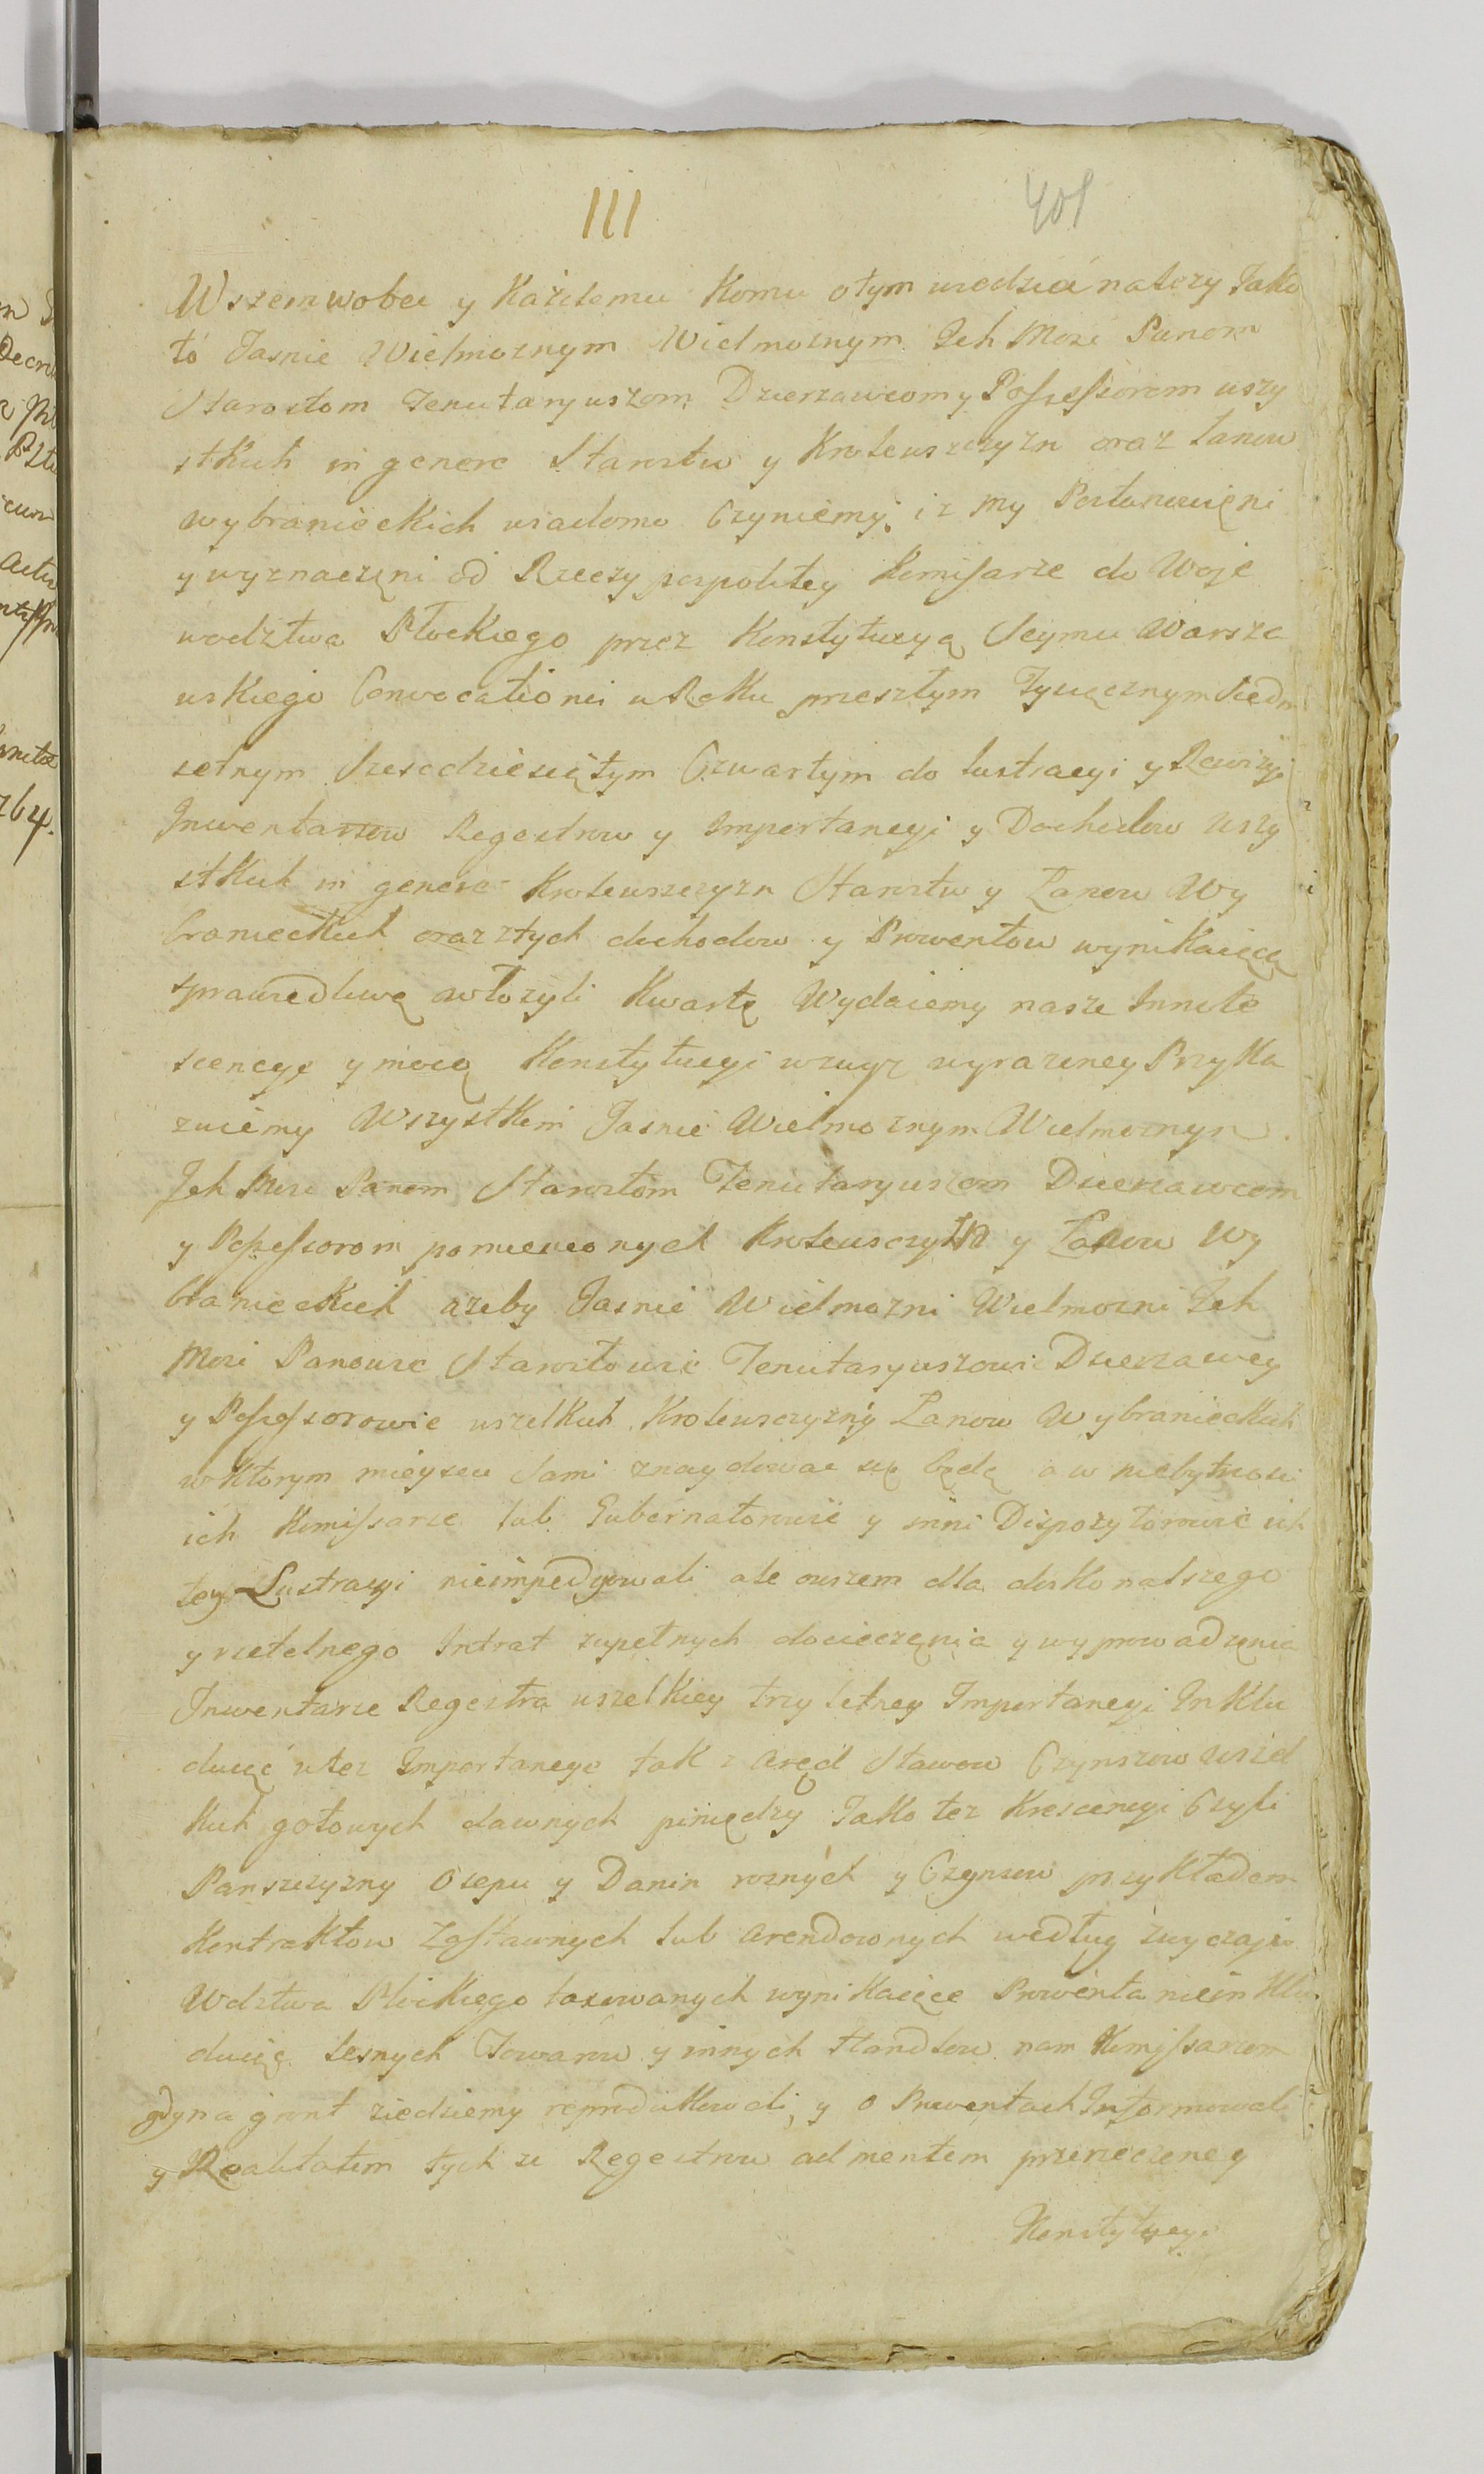 III
401
Wszem wobec y Każdemu Komu otym wiedzieć nalezy Jako
to Jasnie Wielmoznym Wielmoznym Ich Mosc Panom
Starostom Tenutaryuszom Dzierzawcom y Possessorom wszy
stkich in genere Starostw y Krolewszczyzn oraz Łanow
wybranieckich wiadomo Czyniemy iz my Postanowięni
y wyznaczęni od Rzeczy pospolitey Komissarze do Woje
wodztwa Płockiego przez Konstytucyą Seymu Warsza
wskiego Convocationis w Roku przeszłym Tysiącznym Siedm
setnym Szescdziesiątym Czwartym do Lustracyi y Rewizyi
Inwentarzow Regestrow y Importancyi y Dochodow wszy
stkich in genere Krolewszczyzn Starostw y Łanow Wy
branieckich oraz ztych dochodow y Prowentow wynikaiącą
sprawiedliwą włozyli Kwartę Wydaiemy nasze Innote
scencye y mocą Konstytucyi wzwyz wyrazoney Przyka
zuiemy Wszystkim Jasnie Wielmoznym Wielmoznym
Ich Mosc Panom Starostom Tenutaryuszom Dzierzawcom
y Possessorom pomienionych Krolewsczyzn y Łanow Wy
branieckich azeby Jasnie Wielmozni Wielmozni Ich
Mosci Panowie Starostowie Tenutaryuszowie Dzierzawcy
y Possessorowie wszelkich Krolewsczyzn y Łanow Wybranieckich
w Ktorym mieyscu Sami znaydować się będą a w niebytnosci
ich Komissarze lub Gubernatorowie y inni Dispozytorowie ich
tey Lustracyi nieimpedyowali ale owszem dla doskonalszego
y rzetelnego Intrat zupełnych docieczęnia y wyprowadzęnia
Inwentarze Regestra wszelkiey trzyletney Importancyi Inklu
duiąc w tez Importancye tak z Aręd Stawow Czynszow wszel
kich gotowych dawnych piniędzy Jako tez Krescencyi Czyli
Panszczyzny Osepu y Danin roznych y Czynszow przykładem
Kontraktow Zastawnych lub arendownych według zwyczaju
Wdztwa Płockiego taxowanych wynikaiące Prowenta nieinklu
duiąc Lesnych Towarow y innych Handlow nam Komissarzom
gdy na grunt ziedziemy reprodukowali y o Prowentach Informowali
y Realitatem tych ze Regestrow ad mentem przerzeczoney
Konstytucyi